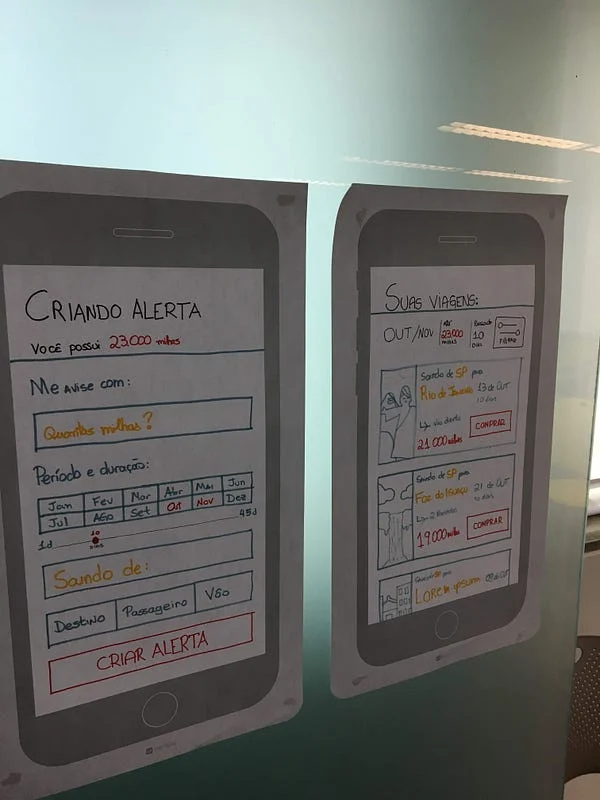 CRIANDO ALERTA
VOCÊ possui 23.000 milhas
Me Avise com:
Quantas milhas?
Período e duração:
Jan Fev Mar Abr Mai Jun
Jul AGO Set Out Nov Dez
1d 10 dias 45d
Saindo de:
Destino Passageiro Vôo
CRIAR ALERTA
SUAS VIAGENS:
OUT/NOV
ATÉ 23.000 milhas
10 Dias
FILTRO
Saindo de SP para
Rio de Janeiro 13 de OUT
10 dias
Vôo direto
21.000 milhas COMPRAR
Saindo de SP para
Foz do Iguaçu 21 de OUT
10 dias
19.000 milhas COMPRAR
SP para
LOREM IPSUM